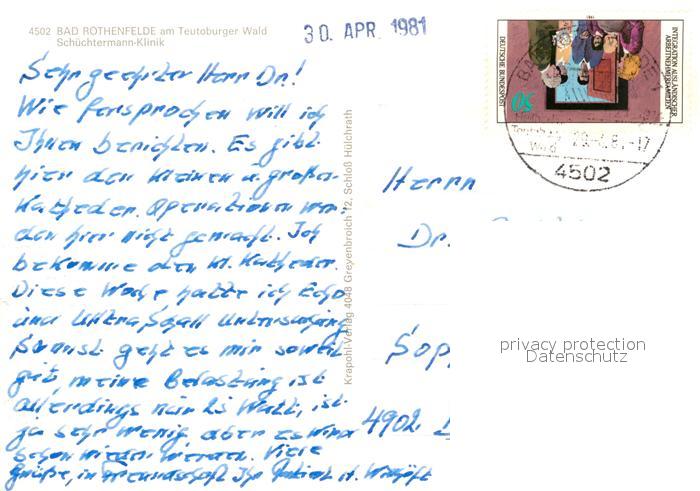 4502 BAD ROTHENFELDE am Teutoburger Wald
Schüchtermann-Klinik
30. APR. 1981
Sehr geehrter Herr Dr.!
Wie fersprochen will ich
Ihnen berichten. Es gibt
hier den kleinen u. großen
Katheder. Operationen wer-
den hier nicht gemacht. Ich
bekomme den kl. Katheder.
Diese Woche hatte ich Echo
und Ultra Schall Untersuchung
Sonnst geht es mir soweit
gut, meine Belastung ist
allerdings nur 25 Watt, ist
ja sehr wenig, aber es wird
schon wieder werden. Viele
Grüße, in Freundschaft Ihr Patient H.
Krapohl-Verlag 4048 Grevenbroich 12, Schloß Hülchrath
DEUTSCHE BUNDESPOST
50
INTEGRATION AUSLÄNDISCHER
ARBEITNEHMERFAMILIEN
BAD
Wald
4502
Herrn
Dr.
Sop
4902
privacy protection
Datenschutz